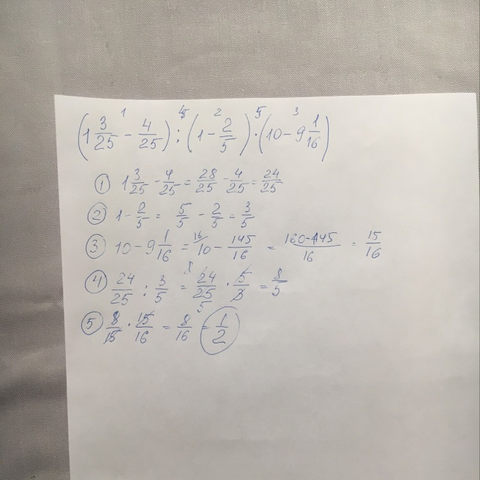 (1 3/25 - 4/25) : (1 - 2/5) · (10 - 9 1/16)
1) 1 3/25 - 4/25 = 28/25 - 4/25 = 24/25
2) 1 - 2/5 = 5/5 - 2/5 = 3/5
3) 10 - 9 1/16 = 10 - 145/16 = 160-145/16 = 15/16
4) 24/25 : 3/5 = 24/25 · 5/3 = 8/5
5) 8/15 · 15/16 = 8/16 = 1/2